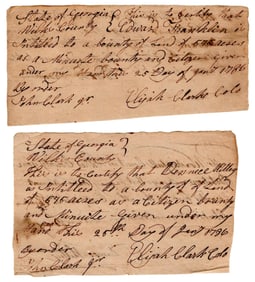 State of Georgia } this is to certify that
Wilks County } Edward Franklen is
Intitled to a bounty of Land of 575 acres
as a Minuit bounty and Citizen Given
under my hand this 25 Day of Janr 1786
By order
John Clark Elijah Clark Colo
State of Georgia }
Wilks County
This is to Certify that Dennee Kelley
is Intitled to a bounty of Land
of 575 acres as a Citizen bounty
and Minuite Given under my
hand this 25th Day of Janr 1786
By order
John Clark Elijah Clark Colo